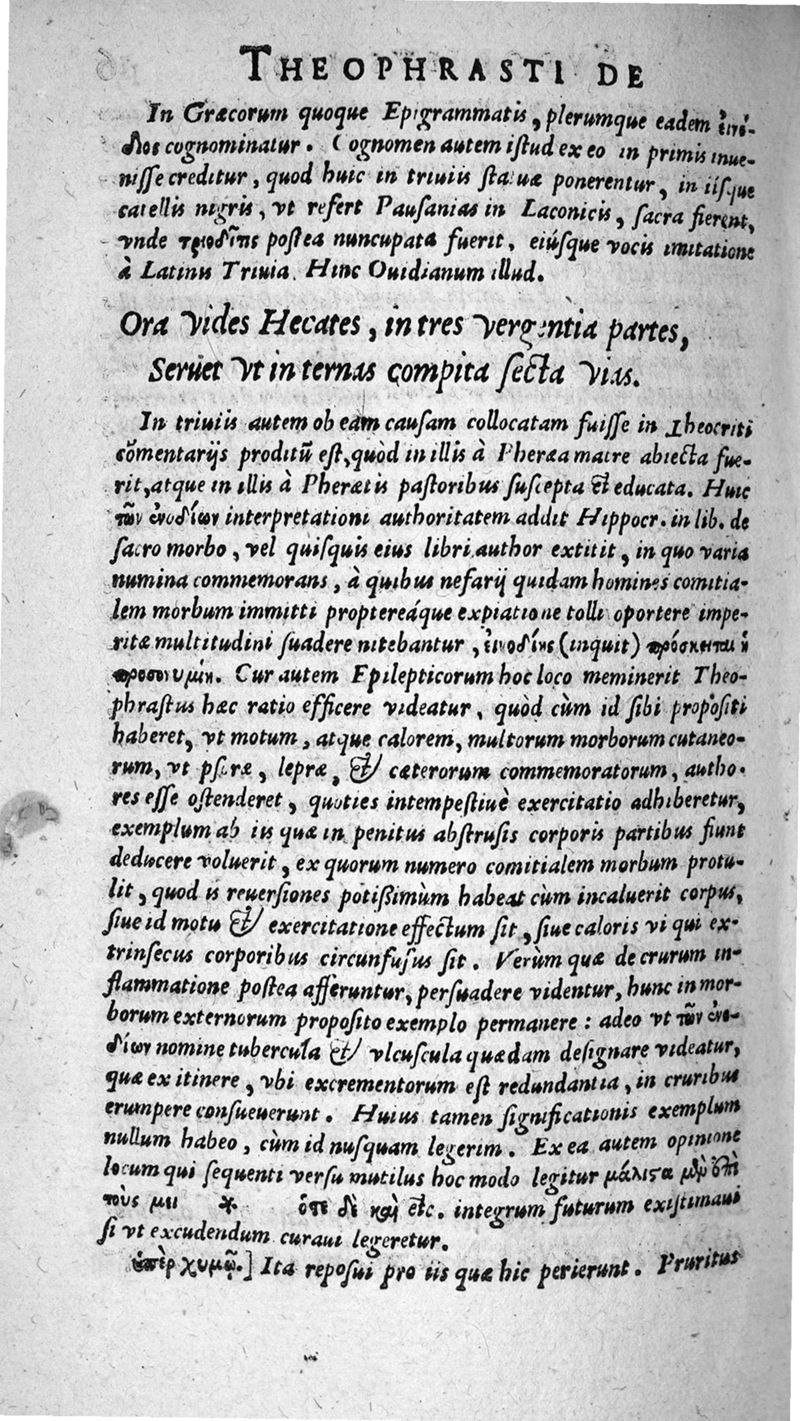 THEOPHRASTI DE
In Græcorum quoque Epigrammatis, plerumque eadem ἐινό-
διος cognominatur. Cognomen autem istud ex eo in primis inue-
nisse creditur, quod huic in triuiis statuæ ponerentur, in iisque
catellis nigris, vt refert Pausanias in Laconicis, sacra fierent,
vnde τριοδῖτις postea nuncupata fuerit, eiúsque vocis imitatione
à Latinis Triuia. Hinc Ouidianum illud.
Ora vides Hecates, in tres vergentia partes,
Seruet vt in ternas compita secta vias.
In triuiis autem ob eam causam collocatam fuisse in Theocriti
cōmentarijs proditū est, quòd in illis à Pheræa matre abiecta fue-
rit, atque in illis à Pheræis pastoribus suscepta & educata. Huic
τῶν ἐνοδίων interpretationi authoritatem addit Hippocr. in lib. de
sacro morbo, vel quisquis eius libri author extitit, in quo varia
numina commemorans, à quibus nefarij quidam homines comitia-
lem morbum immitti proptereáque expiatione tolli oportere impe-
ritæ multitudini suadere nitebantur, (inquit) πρόσκειται ἡ
Cur autem Epilepticorum hoc loco meminerit Theo-
phrastus hæc ratio efficere videatur, quòd cùm id sibi propositi
haberet, vt motum, atque calorem, multorum morborum cutaneo-
rum, vt psoræ, lepræ, & cæterorum commemoratorum, autho-
res esse ostenderet, quoties intempestiuè exercitatio adhiberetur,
exemplum ab iis quæ in penitus abstrusis corporis partibus fiunt
deducere voluerit, ex quorum numero comitialem morbum protu-
lit, quod is reuersiones potißimùm habeat cùm incaluerit corpus,
siue id motu & exercitatione effectum sit, siue caloris vi qui ex-
trinsecus corporibus circunfusus sit. Verùm quæ de crurum in-
flammatione postea afferuntur, persuadere videntur, hunc in mor-
borum externorum proposito exemplo permanere: adeo vt τῶν ἐνο-
δίων nomine tubercula & vlcuscula quædam designare videatur,
quæ ex itinere, vbi excrementorum est redundantia, in cruribus
erumpere consueuerunt. Huius tamen significationis exemplum
nullum habeo, cùm id nusquam legerim. Ex ea autem opinione
locum qui sequenti versu mutilus hoc modo legitur μάλιστα μὲν ἐπὶ
τοὺς μιι * ὅτι δὲ καὶ etc. integrum futurum existimaui
si vt excudendum curaui legeretur.
ὑπὲρ χυμῶ.] Ita reposui pro iis quæ hic perierunt. Pruritus